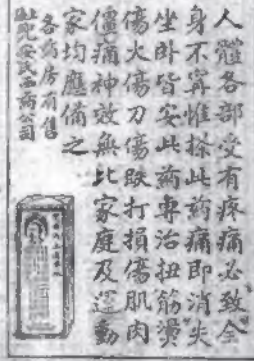 人體各部受有疼痛必致全
身不寗惟搽此葯痛即消失
坐卧皆安此葯專治扭筋燙
傷火傷刀傷跌打損傷肌肉
僵痛神效無比家庭及運動
家均應備之
各葯房有售